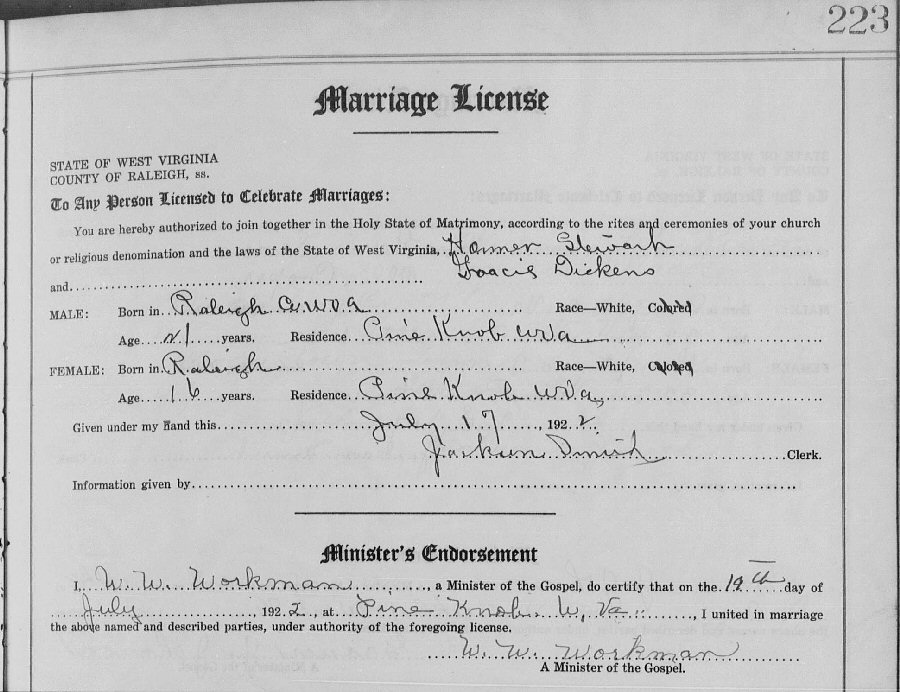 223
Marriage License
STATE OF WEST VIRGINIA
COUNTY OF RALEIGH, ss.
To Any Person Licensed to Celebrate Marriages:
You are hereby authorized to join together in the Holy State of Matrimony, according to the rites and ceremonies of your church
or religious denomination and the laws of the State of West Virginia, Homer Stewart
and Dickens
MALE: Born in Raleigh Co WVa Race—White, Colored
Age 21 years. Residence Pine Knob WVa
FEMALE: Born in Raleigh Race—White, Colored
Age 16 years. Residence Pine Knob WVa
Given under my hand this July 17, 1922.
Jackson Smith Clerk.
Information given by
Minister's Endorsement
I, W. W. Workman, a Minister of the Gospel, do certify that on the 19th day of
July 1922, at Pine Knob W, Va, I united in marriage
the above named and described parties, under authority of the foregoing license.
W. W. Workman
A Minister of the Gospel.